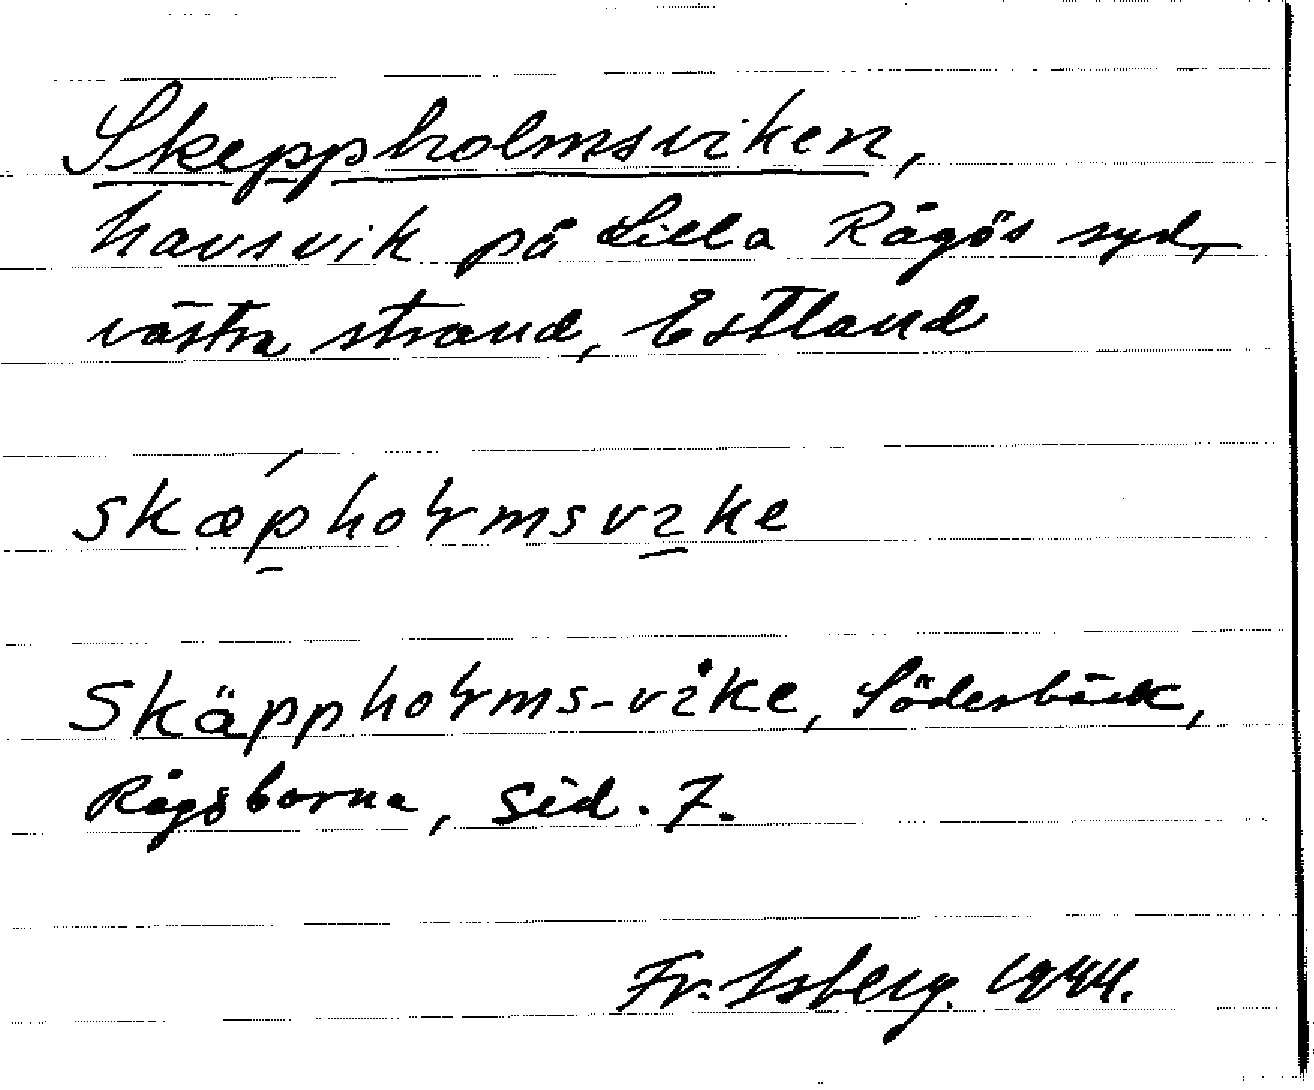 Skeppholmsviken,
havsvik på Lilla Rågös syd-
västra strand, Estland
skæ̀p̲hoɫmsvı̲ke
Skäpphoɫms-vike, Söderbäck,
Rågöborna, Sid. 7.
Fr. Isberg. 1944.